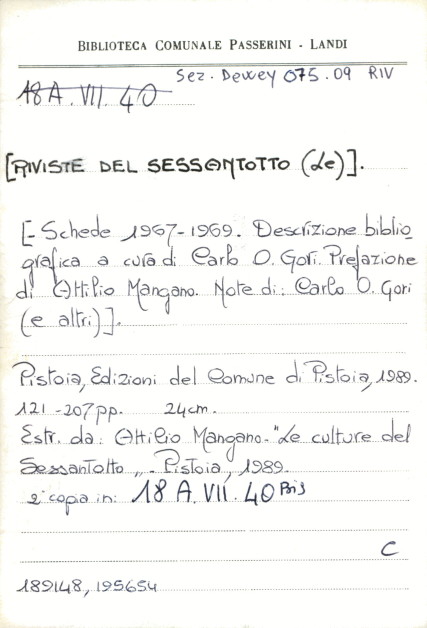 BIBLIOTECA COMUNALE PASSERINI - LANDI
Sez. Dewey 075.09 RIV
18 A. VII. 40
[RIVISTE DEL SESSANTOTTO (Le)].
[- Schede 1967-1969. Descrizione biblio
grafica a cura di Carlo O. Gori. Prefazione
di Attilio Mangano. Note di: Carlo O. Gori
(e altri)].
Pistoia, Edizioni del Comune di Pistoia, 1989.
121-207pp. 24cm.
Estr. da: Attilio Mangano. "Le culture del
Sessantotto" - Pistoia, 1989.
2ª copia in: 18 A. VII. 40 Bis
C
189148, 195654